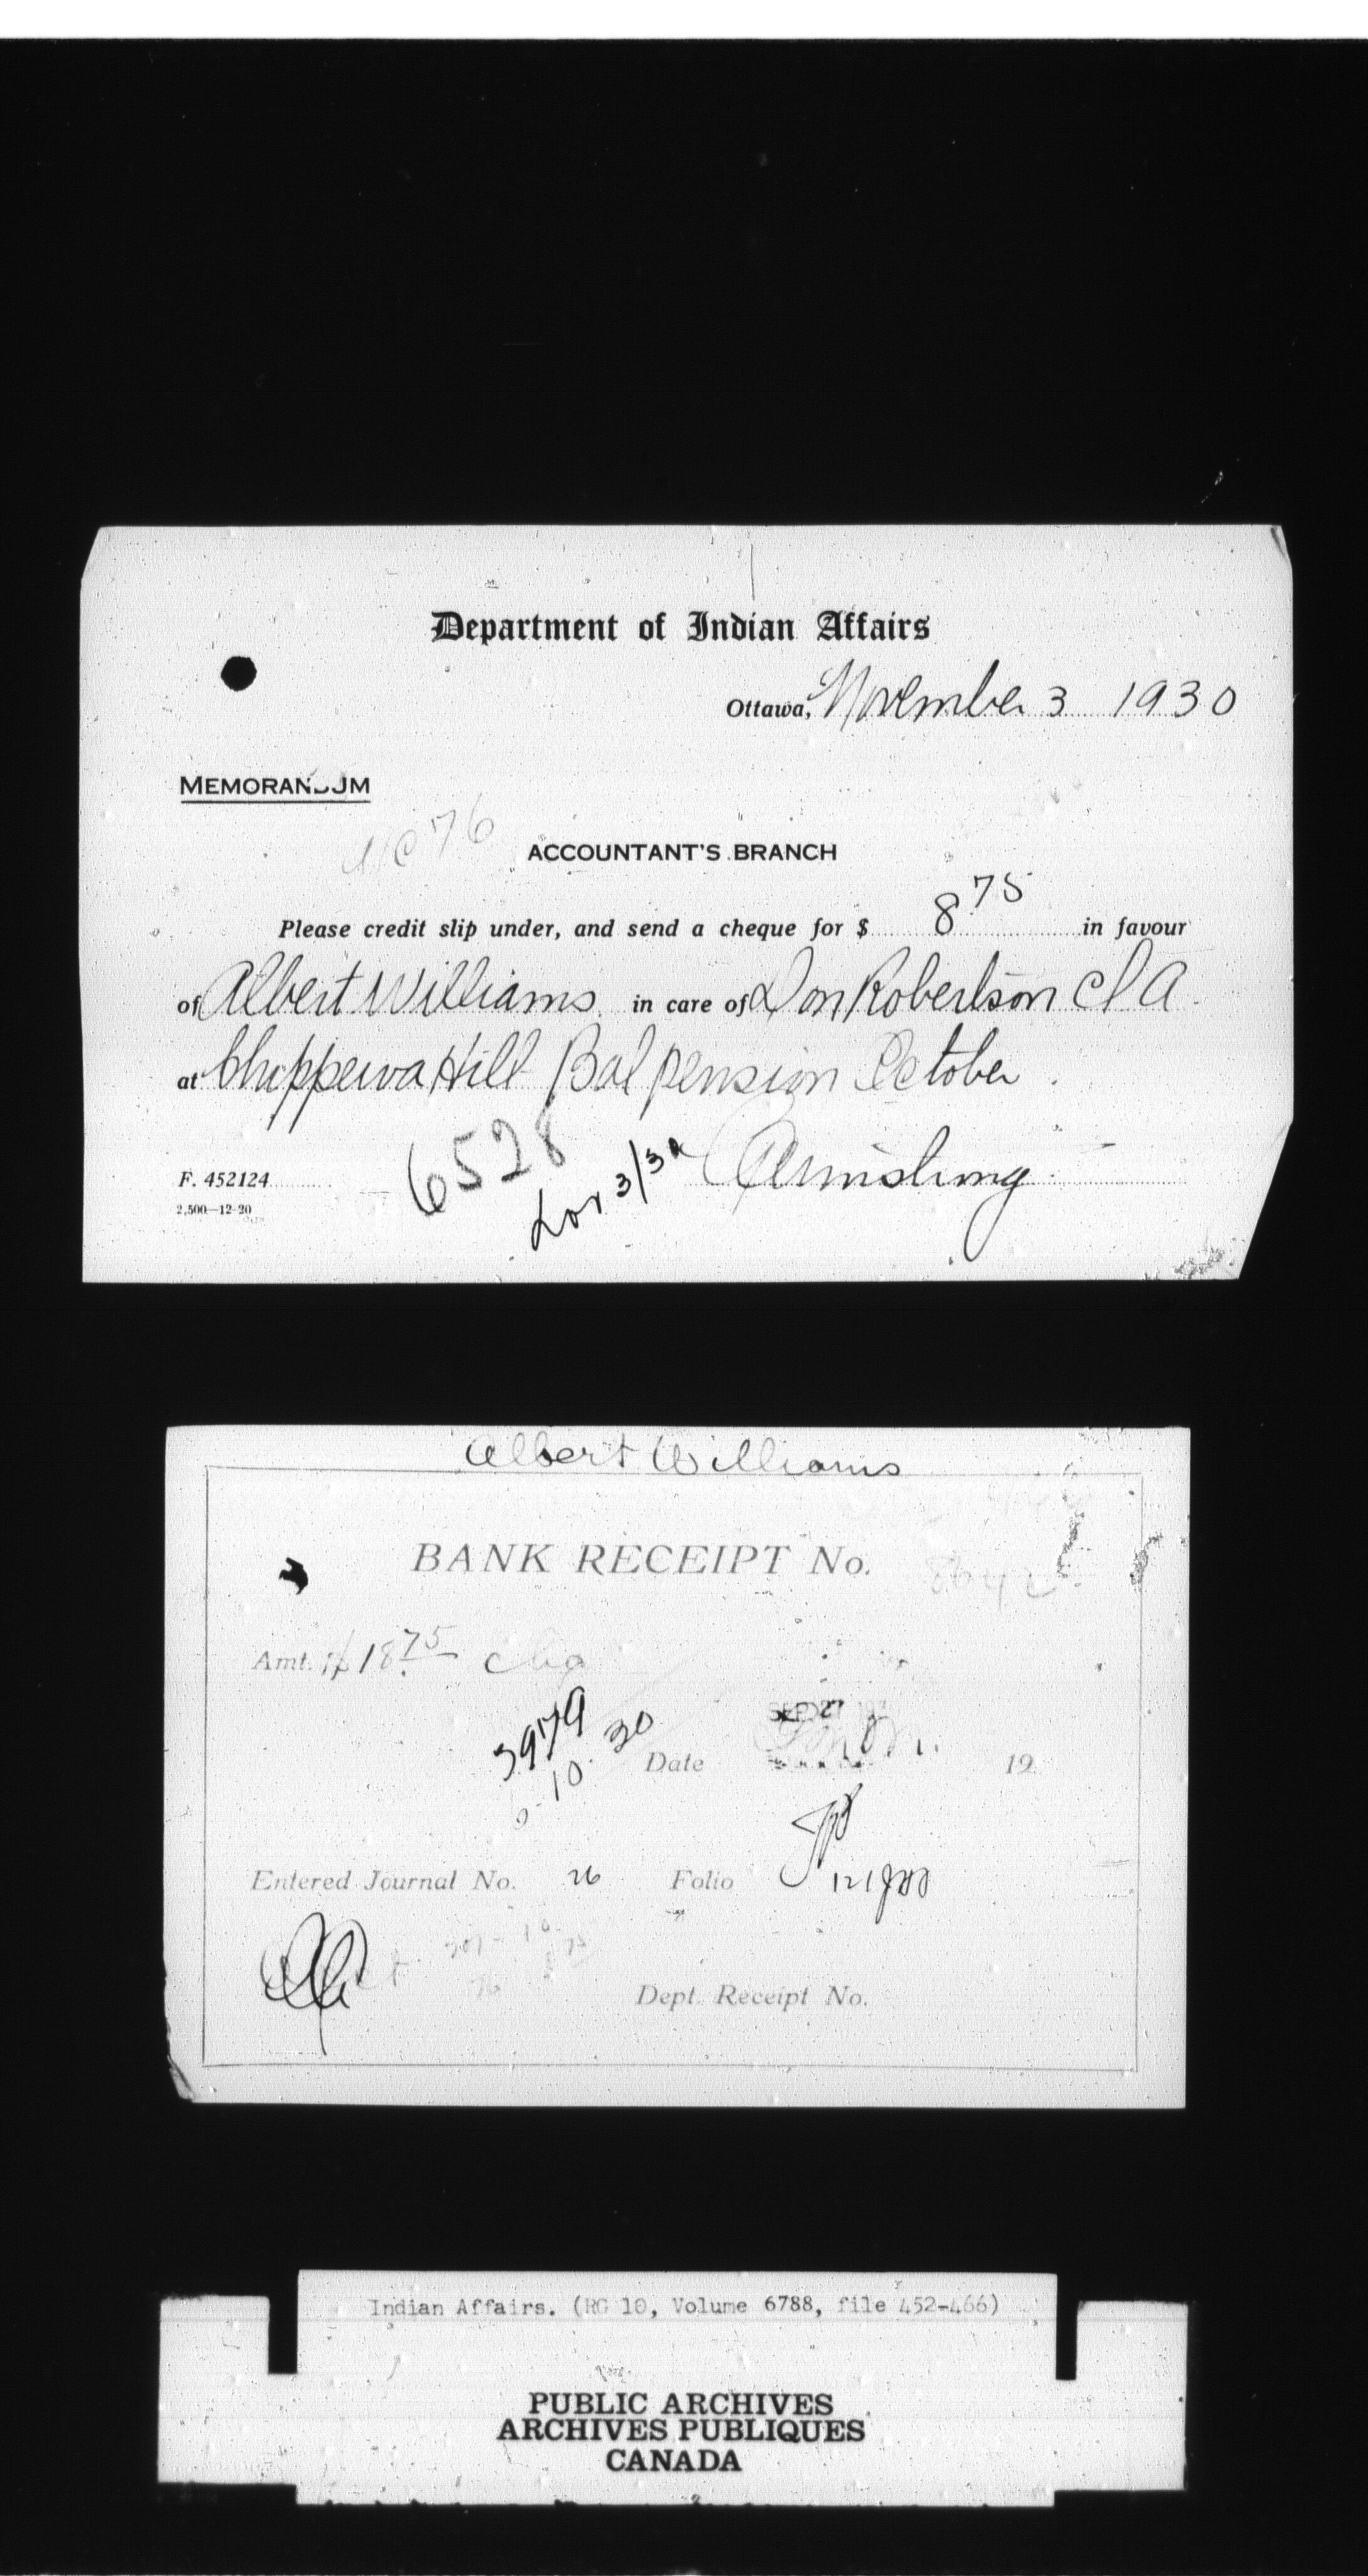 Department of Indian Affairs
Ottawa, November 3 1930
MEMORANDUM
76
ACCOUNTANT'S BRANCH
Please credit slip under, and send a cheque for $ 8 75 in favour
of Albert Williams in care of Don Robertson C I A
at Chippewa Hill Bal pension October
6528
3/30 Armstrong
F. 452124
2,500—12-20
Albert Williams
BANK RECEIPT No.
Amt. $ 18.75
3979
10 30
SEP 27
Date 19
Entered Journal No. 26 Folio 121
Dept. Receipt No.
Indian Affairs. (RG 10, Volume 6788, file 452-466)
PUBLIC ARCHIVES
ARCHIVES PUBLIQUES
CANADA